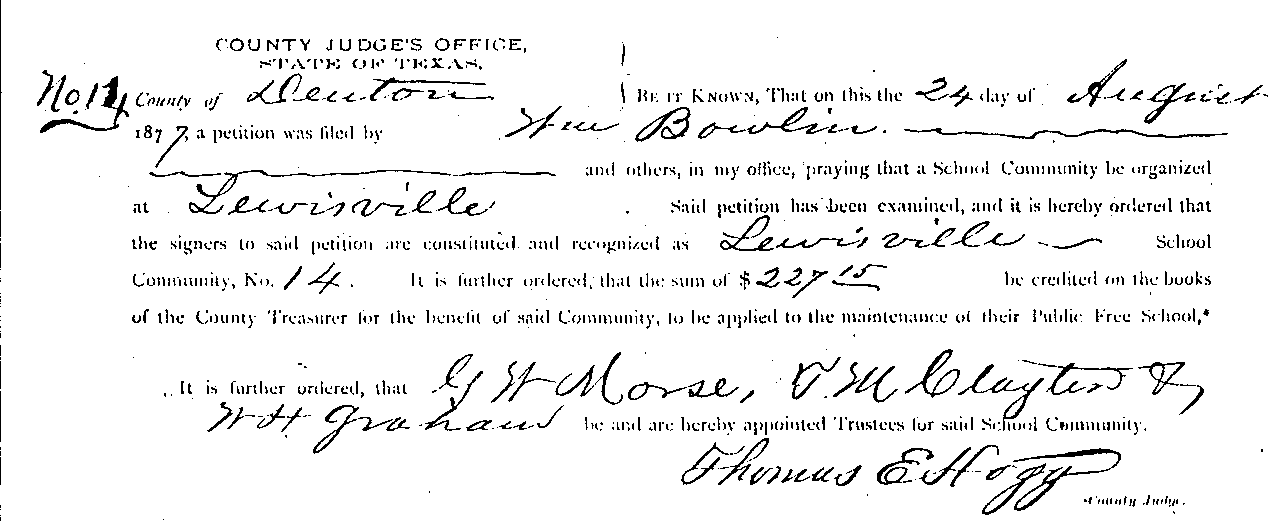 COUNTY JUDGE'S OFFICE,
STATE OF TEXAS.
No. 14 County of Denton BE IT KNOWN, That on this the 24 day of August
1877, a petition was filed by Wm Bowlin.
and others, in my office, praying that a School Community be organized
at Lewisville . Said petition has been examined, and it is hereby ordered that
the signers to said petition are constituted and recognized as Lewisville School
Community, No. 14. It is further ordered, that the sum of $227 15 be credited on the books
of the County Treasurer for the benefit of said Community, to be applied to the maintenance of their Public Free School,*
It is further ordered, that G W Morse, T. M Clayton &
W H Graham be and are hereby appointed Trustees for said School Community.
Thomas E Hogg
County Judge.